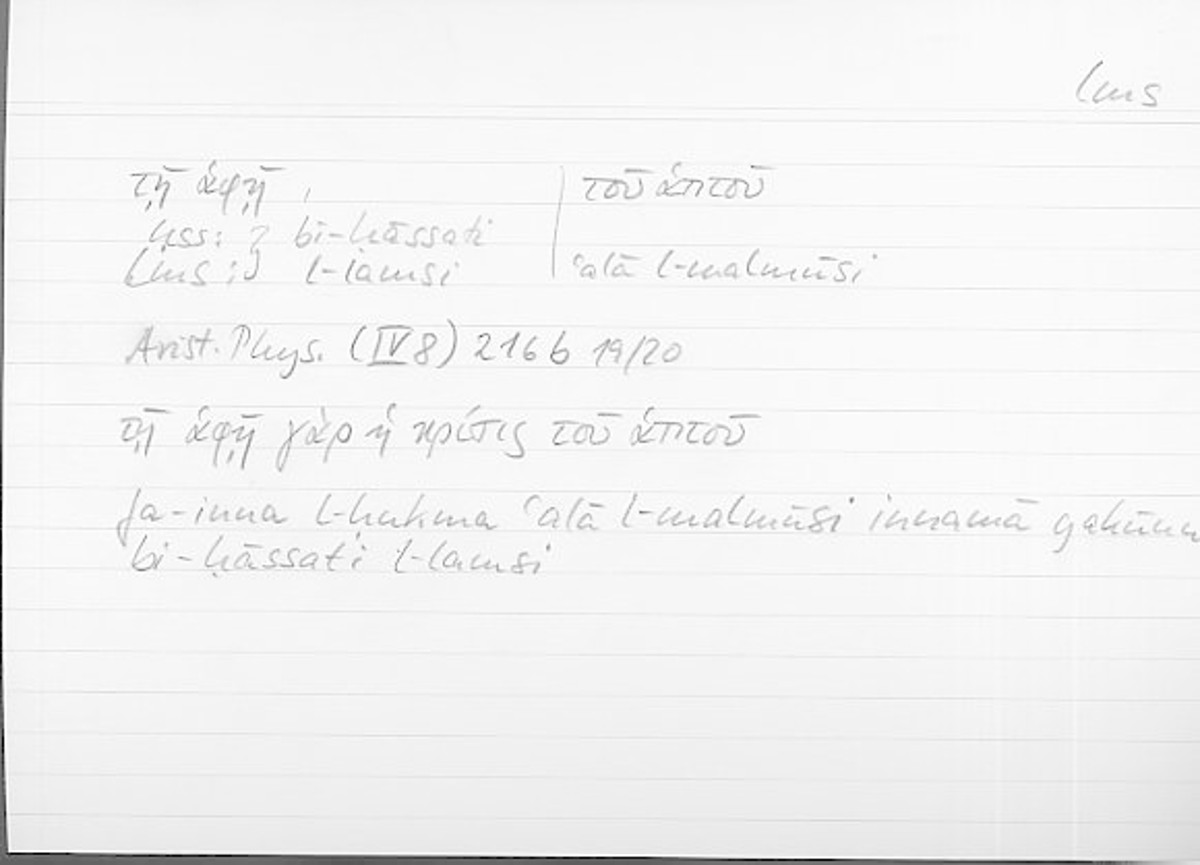 lms
τῇ ἁφῇ, | τοῦ ἁπτοῦ
ḥss: } bi-ḥāssati
lms: } l-lamsi | ʿalā l-malmūsi
Arist. Phys. (IV 8) 216 b 19/20
τῇ ἁφῇ γὰρ ἡ κρίσις τοῦ ἁπτοῦ
fa-inna l-ḥukma ʿalā l-malmūsi innamā yakūnu
bi-ḥāssati l-lamsi